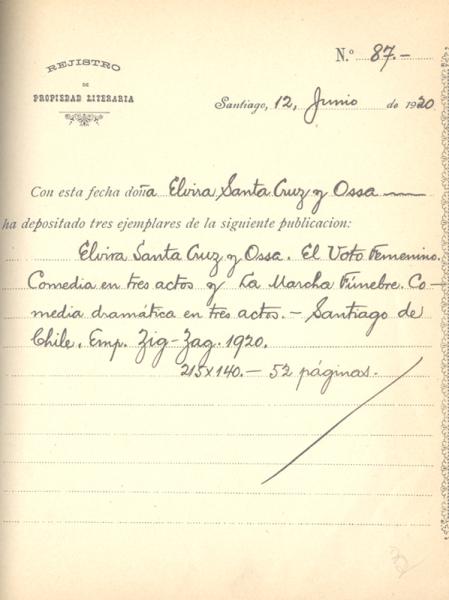 N.º 87.-
REJISTRO
DE
PROPIEDAD LITERARIA
Santiago, 12, Junio de 1920
Con esta fecha doña Elvira Santa Cruz y Ossa
ha depositado tres ejemplares de la siguiente publicacion:
Elvira Santa Cruz y Ossa. El Voto Femenino.
Comedia en tres actos y La Marcha Fúnebre. Co-
media dramática en tres actos. - Santiago de
Chile. Emp. Zig-Zag. 1920.
215x140. - 52 páginas.